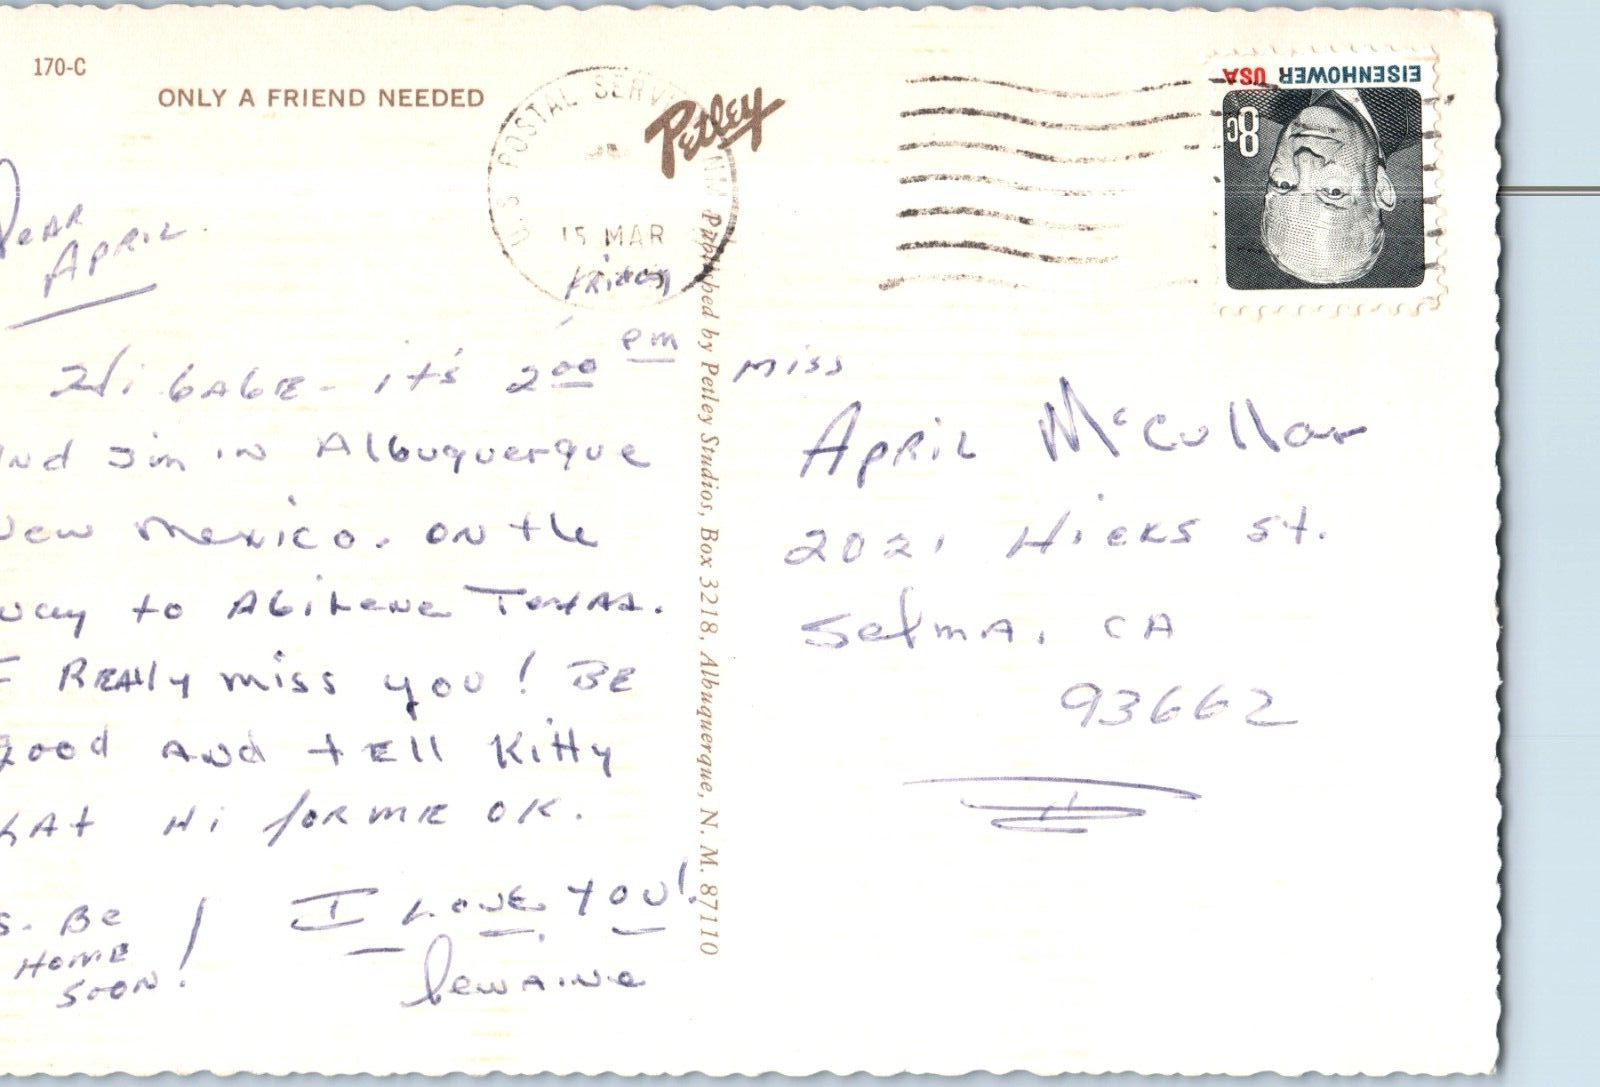 170-C
ONLY A FRIEND NEEDED
Petley
U.S. POSTAL SERV
15 MAR
Friday
EISENHOWER USA
8c
Dear
April
Hi babe - it's 2 00 pm
and I'm in Albuquerque
New Mexico. on the
way to Abilene Texas.
I REAlly miss you! BE
good AND tEll Kitty
KAt Hi for ME OK.
S. Be
HOME
SOON!
I LOVE YOU!
Dewaine
Published by Petley Studios, Box 3218, Albuquerque, N. M. 87110
miss
April McCullar
2021 Hicks St.
Selma, CA
93662